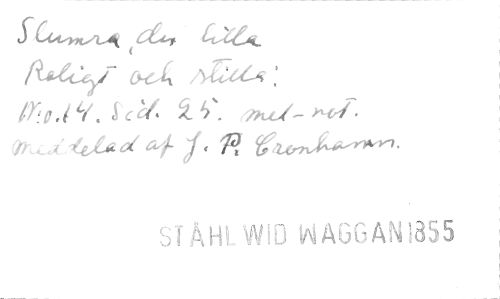 Slumra, du lilla
Roligt och stilla:
No. 14. Sid. 25. mel-not.
meddelad af J. P. Cronhamn.
STÅHL WID WAGGAN 1855